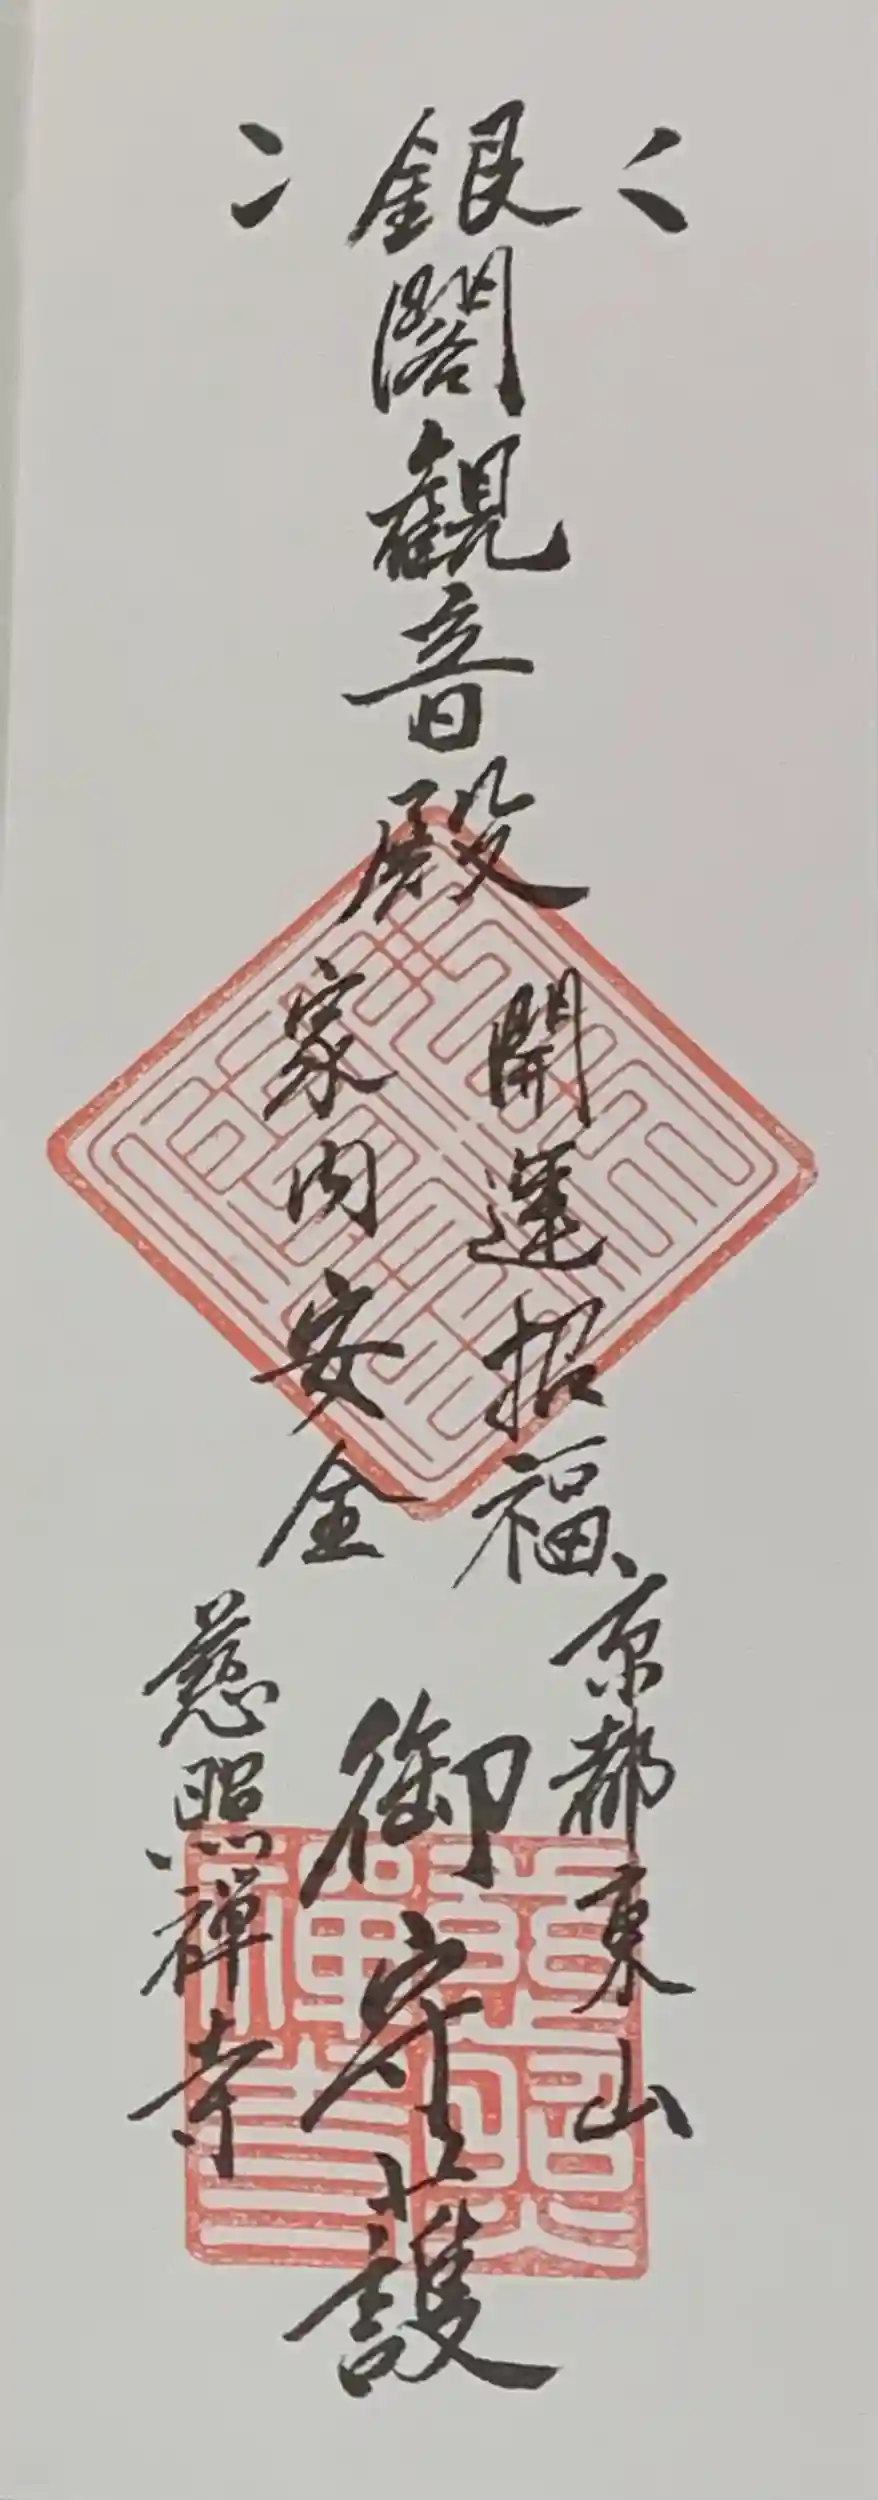 銀閣観音殿
開運招福
家内安全
京都東山
慈照禅寺
御守護
慈照禅寺